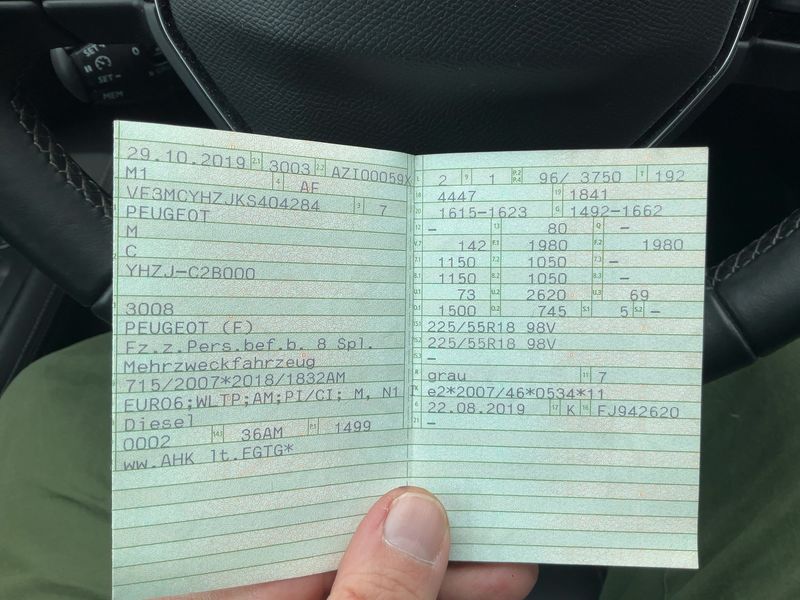 SET +
0
II
SET -
MEM
29.10.2019 2.1 3003 2.2 AZI00059X
M1 4 AF
VF3MCYHZJKS404284 3 7
PEUGEOT
M
C
YHZJ-C2B000
3008
PEUGEOT (F)
Fz.z.Pers.bef.b. 8 Spl.
Mehrzweckfahrzeug
715/2007*2018/1832AM
EURO6;WLTP;AM;PI/CI; M, N1
Diesel
0002 14.1 36AM P.1 1499
ww.AHK lt.EGTG*
L 2 9 1 P.2 P.4 96/ 3750 T 192
18 4447 19 1841
20 1615-1623 G 1492-1662
12 - 13 80 Q -
V.7 142 F.1 1980 F.2 1980
7.1 1150 7.2 1050 7.3 -
8.1 1150 8.2 1050 8.3 -
U.1 73 U.2 2620 U.3 69
O.1 1500 O.2 745 S.1 5 S.2 -
15.1 225/55R18 98V
15.2 225/55R18 98V
15.3 -
R grau 11 7
K e2*2007/46*0534*11
6 22.08.2019 17 K 16 FJ942620
21 -